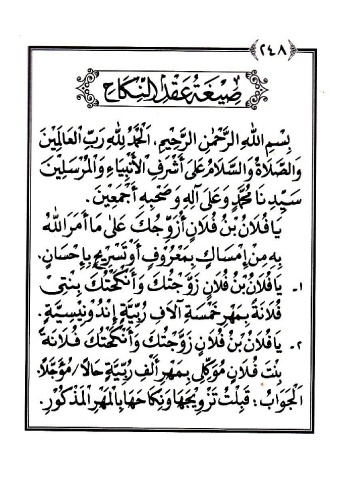 ﴿٢٤٨﴾
صِيْغَةُ عَقْدِ النِّكَاحِ
بِسْمِ اللهِ الرَّحْمٰنِ الرَّحِيْمِ، اَلْحَمْدُ لِلّٰهِ رَبِّ الْعَالَمِيْنَ
وَالصَّلَاةُ وَالسَّلَامُ عَلٰى أَشْرَفِ الْأَنْبِيَاءِ وَالْمُرْسَلِيْنَ
سَيِّدِنَا مُحَمَّدٍ وَعَلٰى آلِهِ وَصَحْبِهِ أَجْمَعِيْنَ.
يَا فُلَانُ بْنُ فُلَانٍ أُزَوِّجُكَ عَلٰى مَا أَمَرَ اللهُ
بِهِ مِنْ إِمْسَاكٍ بِمَعْرُوْفٍ أَوْ تَسْرِيْحٍ بِإِحْسَانٍ.
١- يَا فُلَانُ بْنُ فُلَانٍ زَوَّجْتُكَ وَأَنْكَحْتُكَ بِنْتِيْ
فُلَانَةَ بِمَهْرِ خَمْسَةِ آلَافِ رُبِيَّةٍ إِنْدُوْنِيْسِيَّةٍ.
٢- يَا فُلَانُ بْنُ فُلَانٍ زَوَّجْتُكَ وَأَنْكَحْتُكَ فُلَانَةَ
بِنْتَ فُلَانٍ مُوَكِّلِيْ بِمَهْرِ أَلْفِ رُبِيَّةٍ حَالًا/مُؤَجَّلًا.
اَلْجَوَابُ: قَبِلْتُ تَزْوِيْجَهَا وَنِكَاحَهَا بِالْمَهْرِ الْمَذْكُوْرِ.